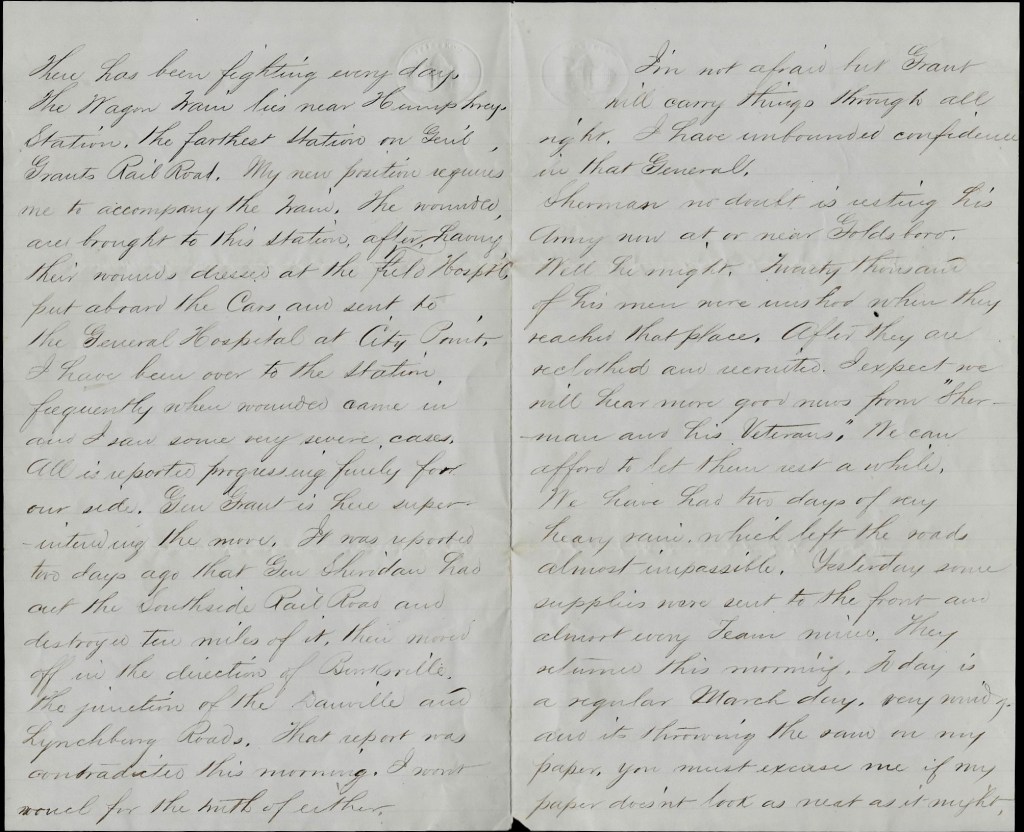 There has been fighting every day.
The Wagon Train lies near Humphreys
Station, the farthest station on Genl,
Grants Rail Road. My new position requires
me to accompany the Train. The wounded,
are brought to this station, after having
their wounds dressed at the field Hospitl
put aboard the Cars, and sent to
the General Hospital at City Point.
I have been over to the station,
frequently when wounded came in
and I saw some very severe, cases.
All is reported progressing finely for
our side. Gen Grant is here super-
-intending the move. It was reported
two days ago that Gen Sheridan had
cut the Southside Rail Road and
destroyed ten miles of it, then moved
off in the direction of Burksville,
the junction of the Danville and
Lynchburg Roads. That report was
contradicted this morning. I wont
vouch for the truth of either.
I'm not afraid but Grant
will carry things through all
right. I have unbounded confidence
in that General.
Sherman no doubt is resting his
Army now at, or near Goldsboro.
Well he might. Twenty thousand
of his men were unshod when they
reached that place. After they are
reclothed and recruited. I expect we
will hear more good news from "Sher-
-man and his Veterans". We can
afford to let them rest a while.
We have had two days of very
heavy rain, which left the roads
almost impassible. Yesterday some
supplies were sent to the front and
almost every Team mired. They
returned this morning. Today is
a regular March day. very windy.
and its throwing the sand on my
paper, you must excuse me if my
paper does'nt look as neat as it might.